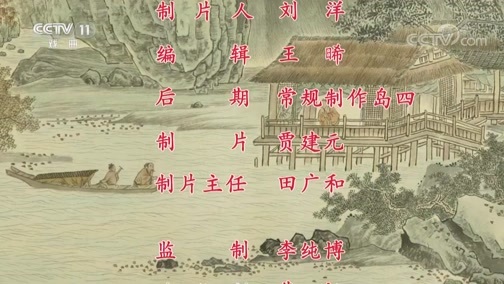 CCTV 11
戏曲
CCTV.com
制片人 刘洋
编辑 王晞
后期 常规制作岛四
制片 贾建元
制片主任 田广和
监制 李纯博